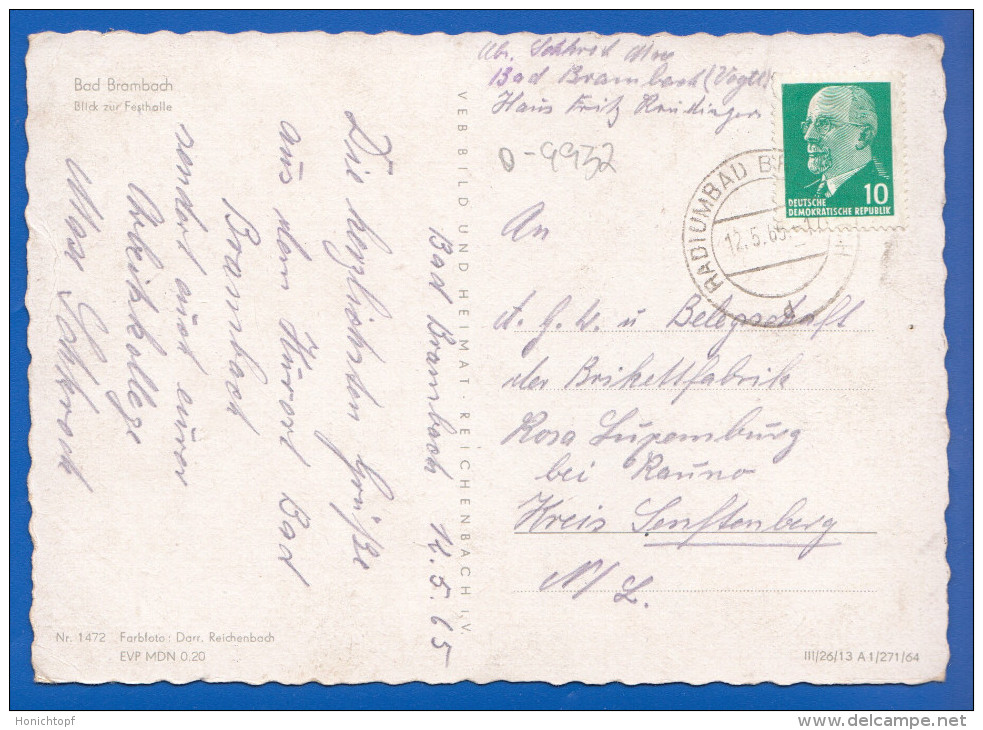 Bad Brambach
Blick zur Festhalle
Abs. Schkrock Max
Bad Brambach (Vogtl)
Haus Fritz
O-9932
DEUTSCHE
DEMOKRATISCHE REPUBLIK
10
RADIUMBAD
12.5.65
Bad Brambach 12.5.65
Die herzlichsten Grüße
aus dem Kurort Bad
Brambach
sendet euch eurer
Arbeitskollege
Max Schkrock
VEB BILD UND HEIMAT · REICHENBACH i. V.
An
A. G. L. u Belegschaft
der Brikettfabrik
Rosa Luxemburg
bei Rauno
Kreis Senftenberg
N/L.
Nr. 1472 Farbfoto: Darr, Reichenbach
EVP MDN 0.20
III/26/13 A 1/271/64
Honichtopf
www.delcampe.net